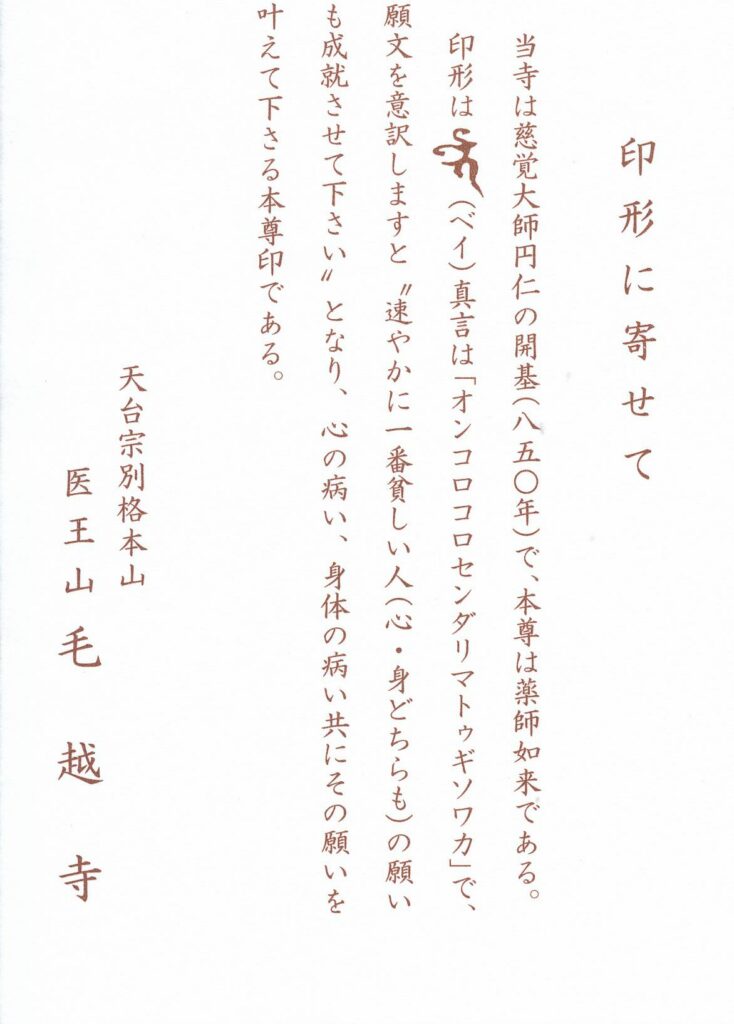 印形に寄せて
当寺は慈覚大師円仁の開基(八五〇年)で、本尊は薬師如来である。
印形は(ベイ)真言は「オンコロコロセンダリマトゥギソワカ」で、
願文を意訳しますと〝速やかに一番貧しい人(心・身どちらも)の願い
も成就させて下さい〟となり、心の病い、身体の病い共にその願いを
叶えて下さる本尊印である。
天台宗別格本山
医王山毛越寺